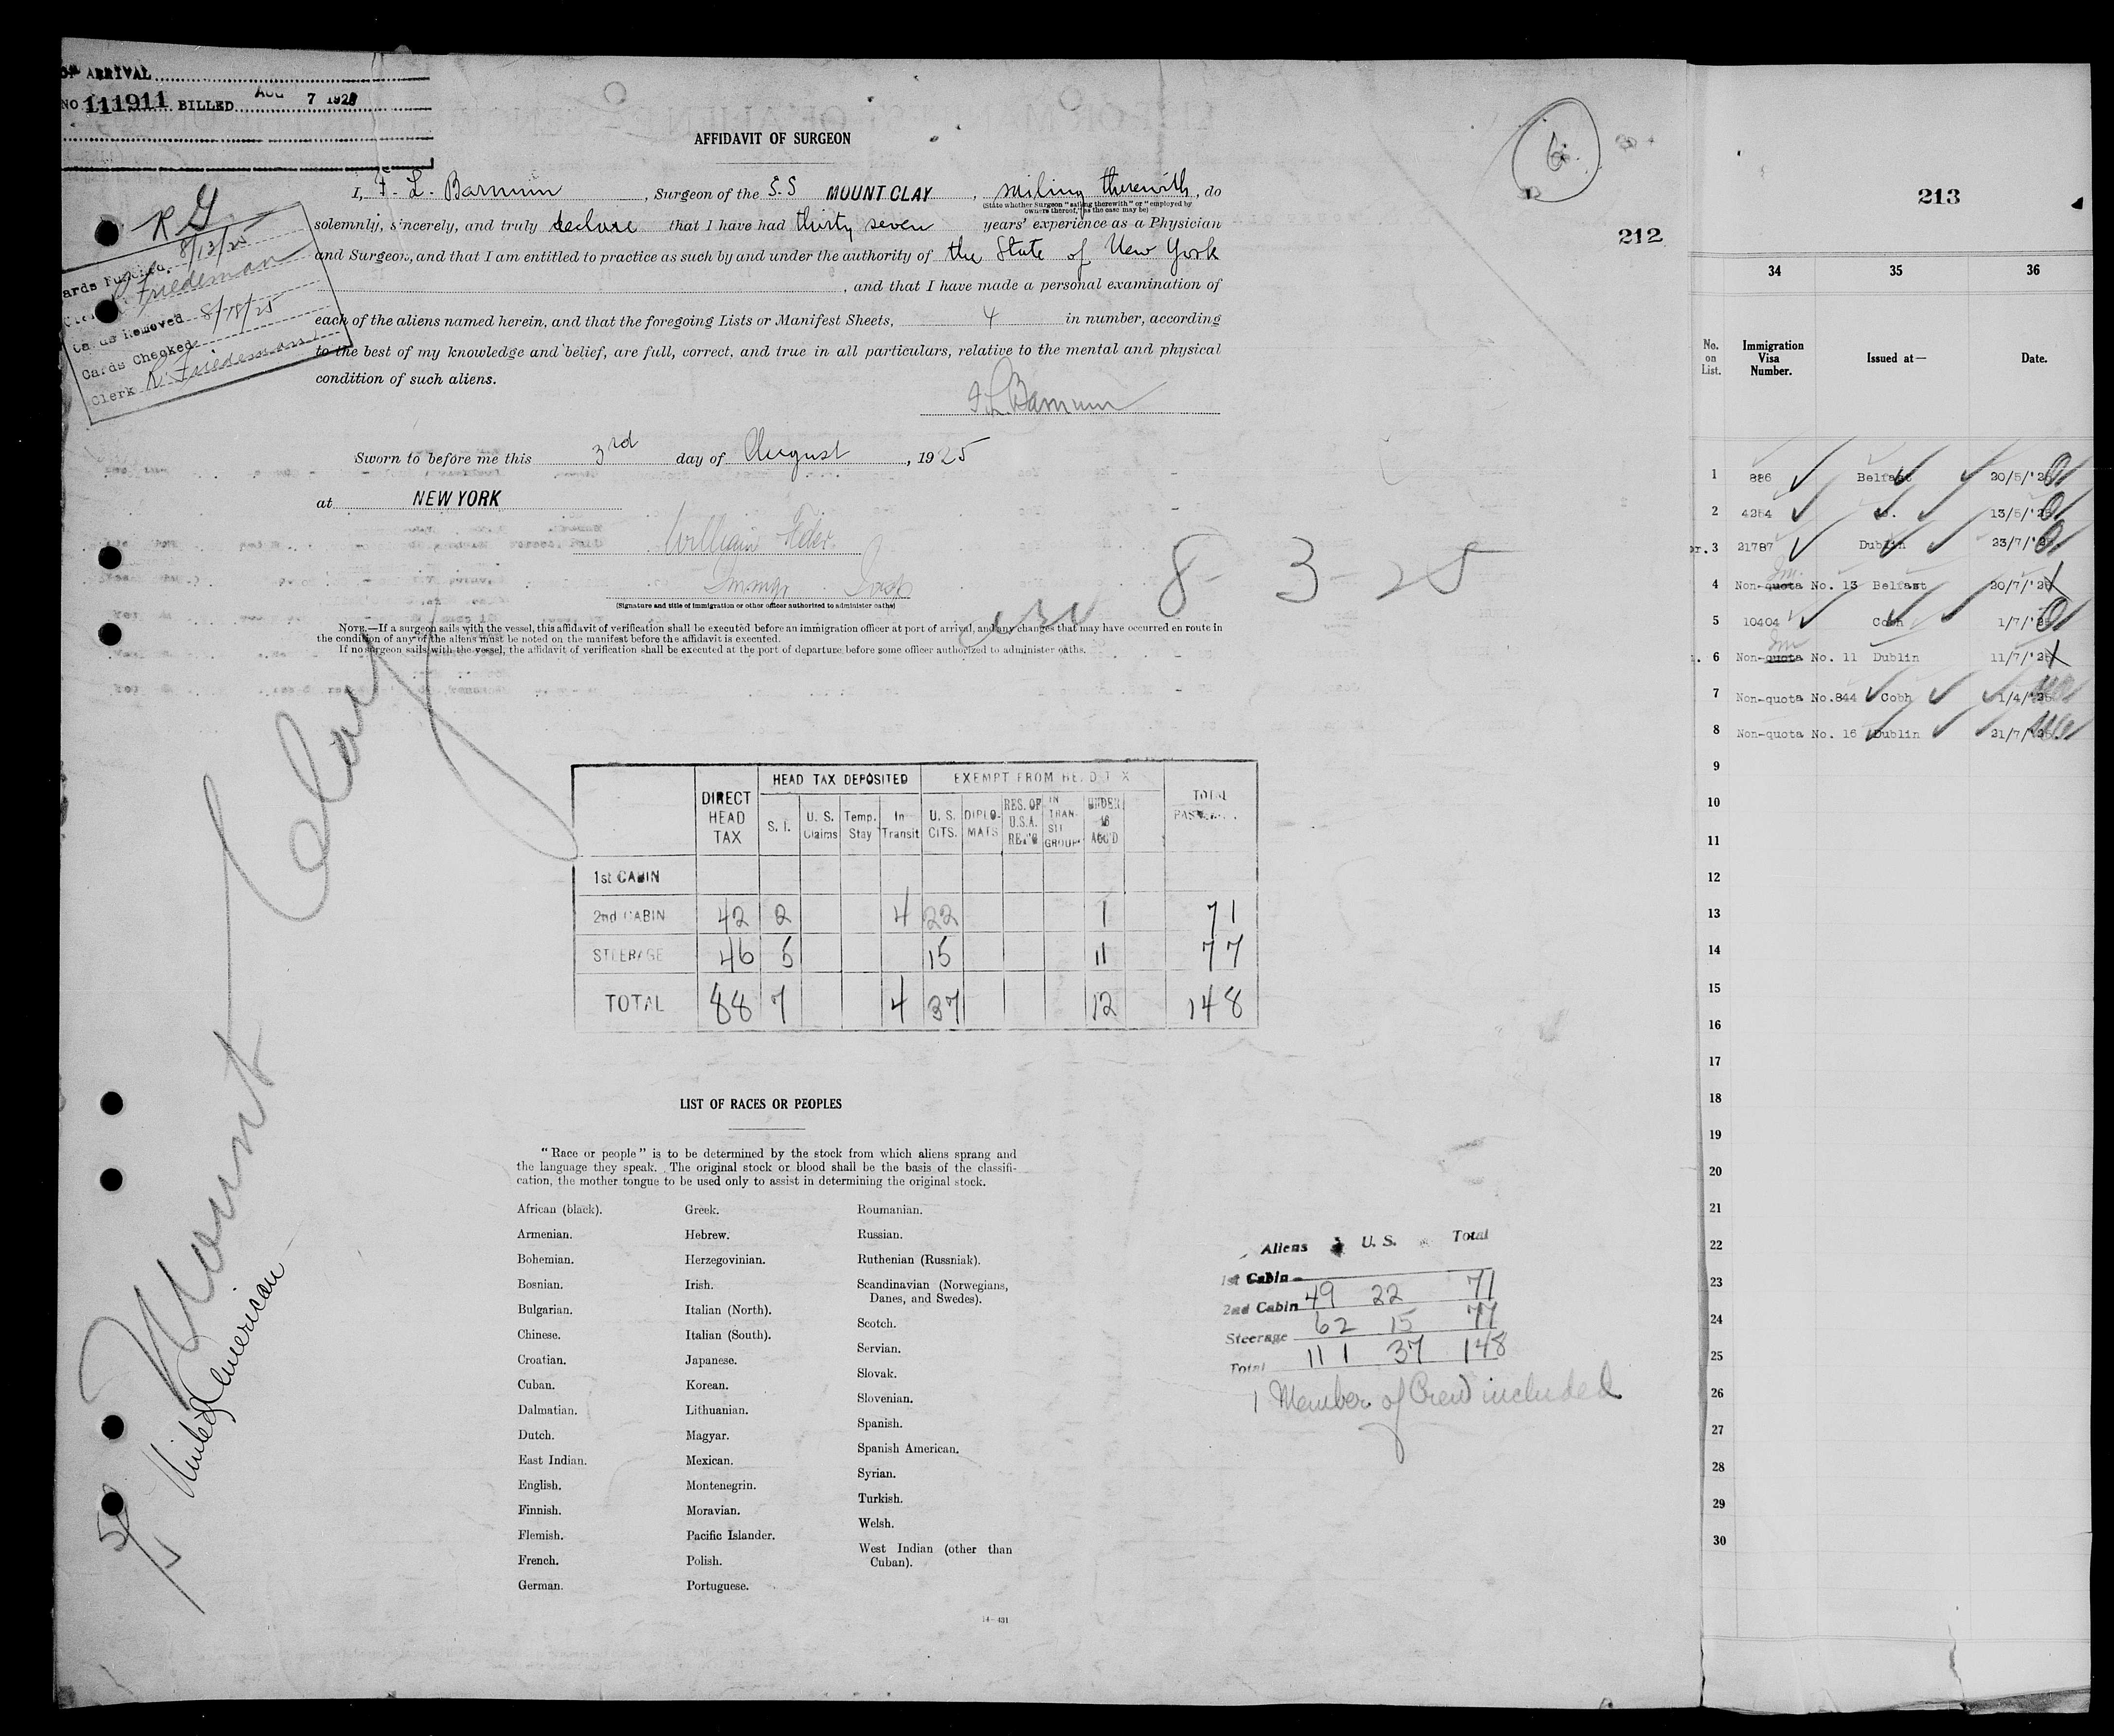 ARRIVAL
NO 111911 BILLED AUG 7 1925
AFFIDAVIT OF SURGEON
6
212
I, F. L. Barnum, Surgeon of the S.S MOUNT CLAY, sailing therewith, do
(State whether Surgeon "sailing therewith" or "employed by
owners thereof," as the case may be)
solemnly, sincerely, and truly declare that I have had thirty seven years' experience as a Physician
and Surgeon, and that I am entitled to practice as such by and under the authority of the State of New York
, and that I have made a personal examination of
each of the aliens named herein, and that the foregoing Lists or Manifest Sheets, 4 in number, according
to the best of my knowledge and belief, are full, correct, and true in all particulars, relative to the mental and physical
condition of such aliens.
F L Barnum
R G
8/13/25
Friedeman
Cards Removed 8/18/25
Cards Checked
Clerk R. Friedeman
Sworn to before me this 3rd day of August, 1925
at NEW YORK
William
(Signature and title of immigration or other officer authorized to administer oaths)
8-3-25
NOTE.—If a surgeon sails with the vessel, this affidavit of verification shall be executed before an immigration officer at port of arrival, and any changes that may have occurred en route in
the condition of any of the aliens must be noted on the manifest before the affidavit is executed.
If no surgeon sails with the vessel, the affidavit of verification shall be executed at the port of departure before some officer authorized to administer oaths.
Mount Clay
United American
DIRECT HEAD TAX HEAD TAX DEPOSITED EXEMPT FROM HEAD TAX TOTAL
S. I. U. S. Claims Temp. Stay In Transit U. S. CITS. DIPLO-MATS RES. OF U.S.A. RET'G IN TRAN-SIT GROUP UNDER 16 ACC'D
1st CABIN
2nd CABIN 42 2 4 22 1 71
STEERAGE 46 5 15 11 77
TOTAL 88 7 4 37 12 148
LIST OF RACES OR PEOPLES
"Race or people" is to be determined by the stock from which aliens sprang and
the language they speak. The original stock or blood shall be the basis of the classifi-
cation, the mother tongue to be used only to assist in determining the original stock.
African (black).
Armenian.
Bohemian.
Bosnian.
Bulgarian.
Chinese.
Croatian.
Cuban.
Dalmatian.
Dutch.
East Indian.
English.
Finnish.
Flemish.
French.
German.
Greek.
Hebrew.
Herzegovinian.
Irish.
Italian (North).
Italian (South).
Japanese.
Korean.
Lithuanian.
Magyar.
Mexican.
Montenegrin.
Moravian.
Pacific Islander.
Polish.
Portuguese.
Roumanian.
Russian.
Ruthenian (Russniak).
Scandinavian (Norwegians,
Danes, and Swedes).
Scotch.
Servian.
Slovak.
Slovenian.
Spanish.
Spanish American.
Syrian.
Turkish.
Welsh.
West Indian (other than
Cuban).
14-431
Aliens U. S. Total
1st Cabin
2nd Cabin 49 22 71
Steerage 62 15 77
Total 111 37 148
1 Member of Crew included
213
34 35 36
No. on List. Immigration Visa Number. Issued at— Date.
1 886 Belfast 20/5/'25
2 4284 do. 13/5/'25
3 21787 Dublin 23/7/'25
4 Non-quota No. 13 Belfast 20/7/'25
5 10404 Cobh 1/7/'25
6 Non-quota No. 11 Dublin 11/7/'25
7 Non-quota No.844 Cobh 1/4/'25
8 Non-quota No. 16 Dublin 21/7/'25
9
10
11
12
13
14
15
16
17
18
19
20
21
22
23
24
25
26
27
28
29
30